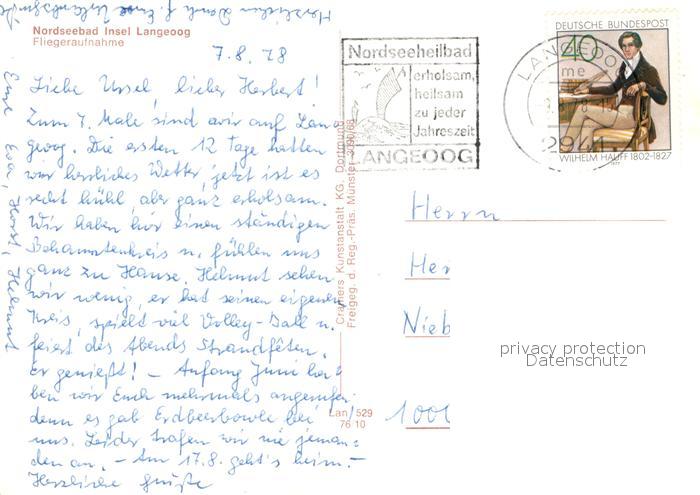 Herzlichen Dank f. Eure Urlaubsgrüße
Nordseebad Insel Langeoog
Fliegeraufnahme
7.8.78
Liebe Ursel lieber Herbert!
Zum 7. Male sind wir auf Lan=
geoog. Die ersten 12 Tage hatten
wir herrliches Wetter, jetzt ist es
recht kühl, aber ganz erholsam.
Wir haben hier einen ständigen
Bekanntenkreis u. fühlen uns
ganz zu Hause. Helmut sehen
wir wenig, er hat seinen eigenen
Kreis, spielt viel Volley-Ball u.
feiert des Abends Strandfeten.
Er genießt! - Anfang Juni ha=
ben wir Euch mehrmals angerufen
denn es gab Erdbeerbowle bei
uns. Leider trafen wir nie jeman=
den an. - Am 17.8. geht's heim. -
Herzliche Grüße
Eure Eva, Horst, Helmut
Cramers Kunstanstalt KG, Dortmund
Freigeg. d. Reg.-Präs. Münster
Lan 529
76 10
Nordseeheilbad
erholsam,
heilsam
zu jeder
Jahreszeit
LANGEOOG
DEUTSCHE BUNDESPOST
40
LANGEOOG
me
2941
WILHELM HAUFF 1802-1827
Herrn
Her
Nieb
100
privacy protection
Datenschutz